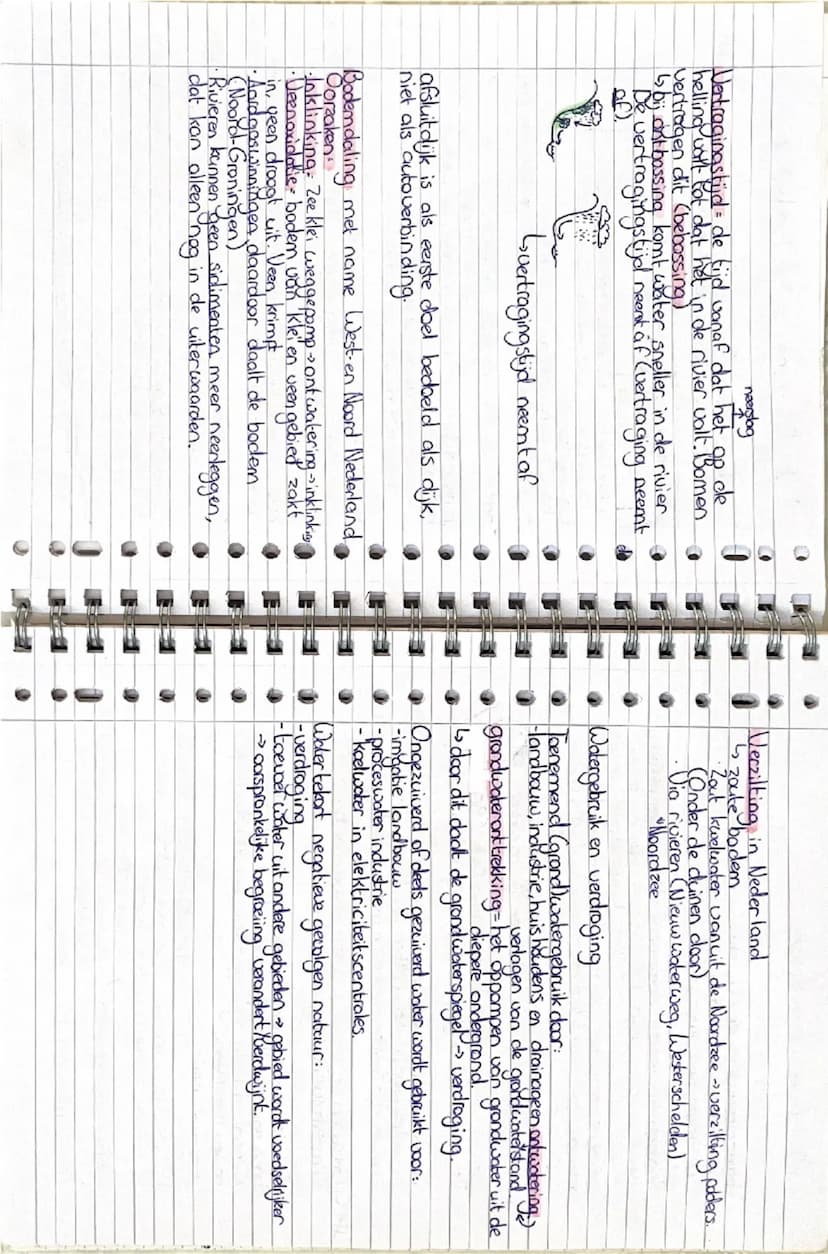 neerslag
Vertragingstijd = de tijd vanaf dat het op de
helling valt tot dat het in de rivier valt. Bomen
vertragen dit (bebossing)
↳ bij ontbossing komt water sneller in de rivier
De vertragingstijd neemt af (vertraging neemt
af)
↳ vertragingstijd neemt af
afsluitdijk is als eerste doel bedoeld als dijk,
niet als autoverbinding.
Bodemdaling met name West-en Noord Nederland
Oorzaken:
· Inklinking = zeeklei weggepomp → ontwatering → inklinking
· Veenoxidatie = bodem van klei en veengebied zakt
in, veen droogt uit. Veen krimpt
· Aardgaswinningen, daardoor daalt de bodem
(Noord-Groningen)
· Rivieren kunnen geen sidimenten meer neerleggen,
dat kan alleen nog in de uiterwaarden.
Verzilting in Nederland
↳ zoute bodem
· Zout kwelwater vanuit de Noordzee → verzilting polders.
(Onder de duinen door)
· Via rivieren (Nieuw waterweg, Westerschelden)
Noordzee
Watergebruik en verdroging
Toenemend (grond)watergebruik door:
- landbouw, industrie, huishoudens en drainage en ontwatering
verlagen van de grondwaterstand
grondwateronttrekking = het oppompen van grondwater uit de
diepere ondergrond.
↳ door dit daalt de grondwaterspiegel → verdroging.
Ongezuiverd of deels gezuiverd water wordt gebruikt voor:
- irrigatie landbouw
- proceswater industrie
- koelwater in elektriciteitscentrales.
Watertekort negatieve gevolgen natuur:
- verdroging
- toevoer water uit andere gebieden → gebied wordt voedselrijker
→ oorspronkelijke begroeiing verandert/verdwijnt.